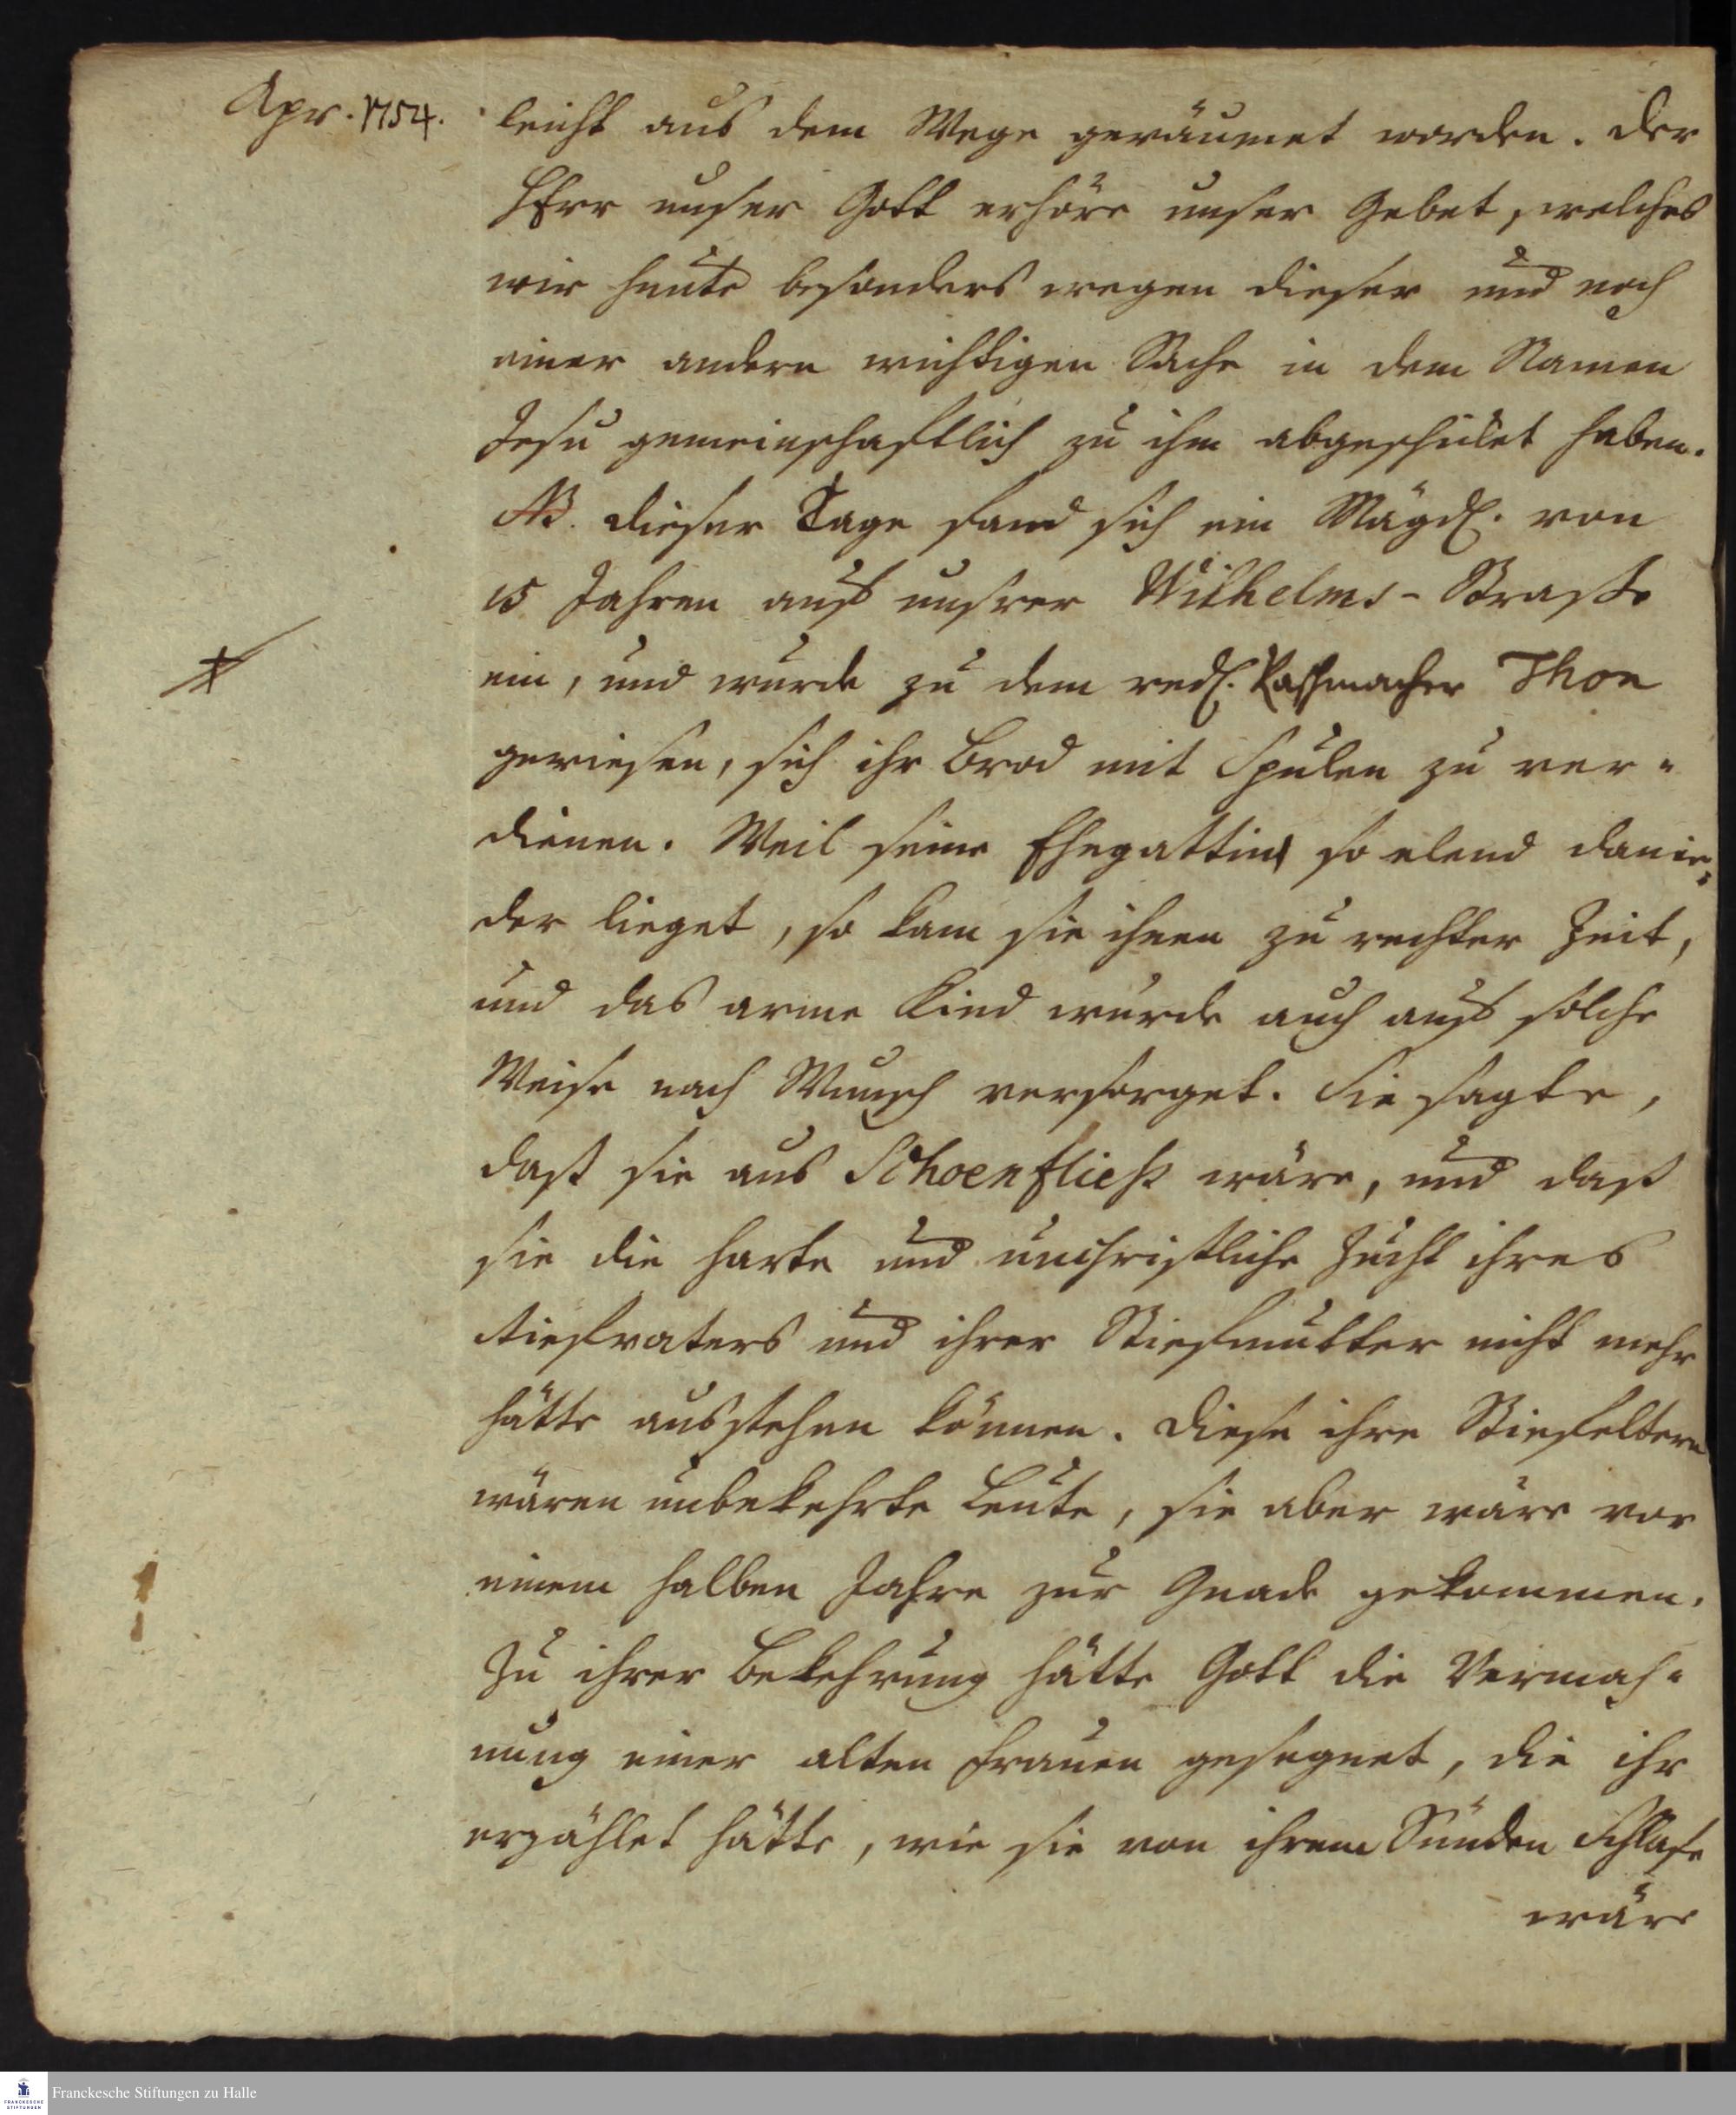 Apr. 1754.
leicht aus dem Wege geräumet worden. Der
HErr unser Gott erhöre unser Gebet, welches
wir heute besonders wegen dieser und noch
einer andern wichtigen Sache in dem Namen
Jesu gemeinschaftlich zu ihm abgeschickt haben.
NB. Dieser Tage fand sich ein Mägdl. von
15 Jahren auf unsrer Wilhelms-Straße
ein, und wurde zu dem redl. Raschmacher Thon
gewiesen, sich ihr Brod mit Spulen zu ver-
dienen. Weil seine Ehegattin so elend danie-
der lieget, so kam sie ihnen zu rechter Zeit,
und das arme Kind wurde auch auf solche
Weise nach Wunsch versorget. Sie sagte,
daß sie aus Schoenfliess wäre, und daß
sie die harte und unchristliche Zucht ihres
Stiefvaters und ihrer Stiefmutter nicht mehr
hätte ausstehen können. Diese ihre Stiefeltern
wären unbekehrte Leute, sie aber wäre vor
einem halben Jahre zur Gnade gekommen.
Zu ihrer Bekehrung hätte Gott die Vermah-
nung einer alten Frauen gesegnet, die ihr
erzählet hätte, wie sie von ihrem Sünden Schlafe
wäre
Franckesche Stiftungen zu Halle
FRANCKESCHE
STIFTUNGEN